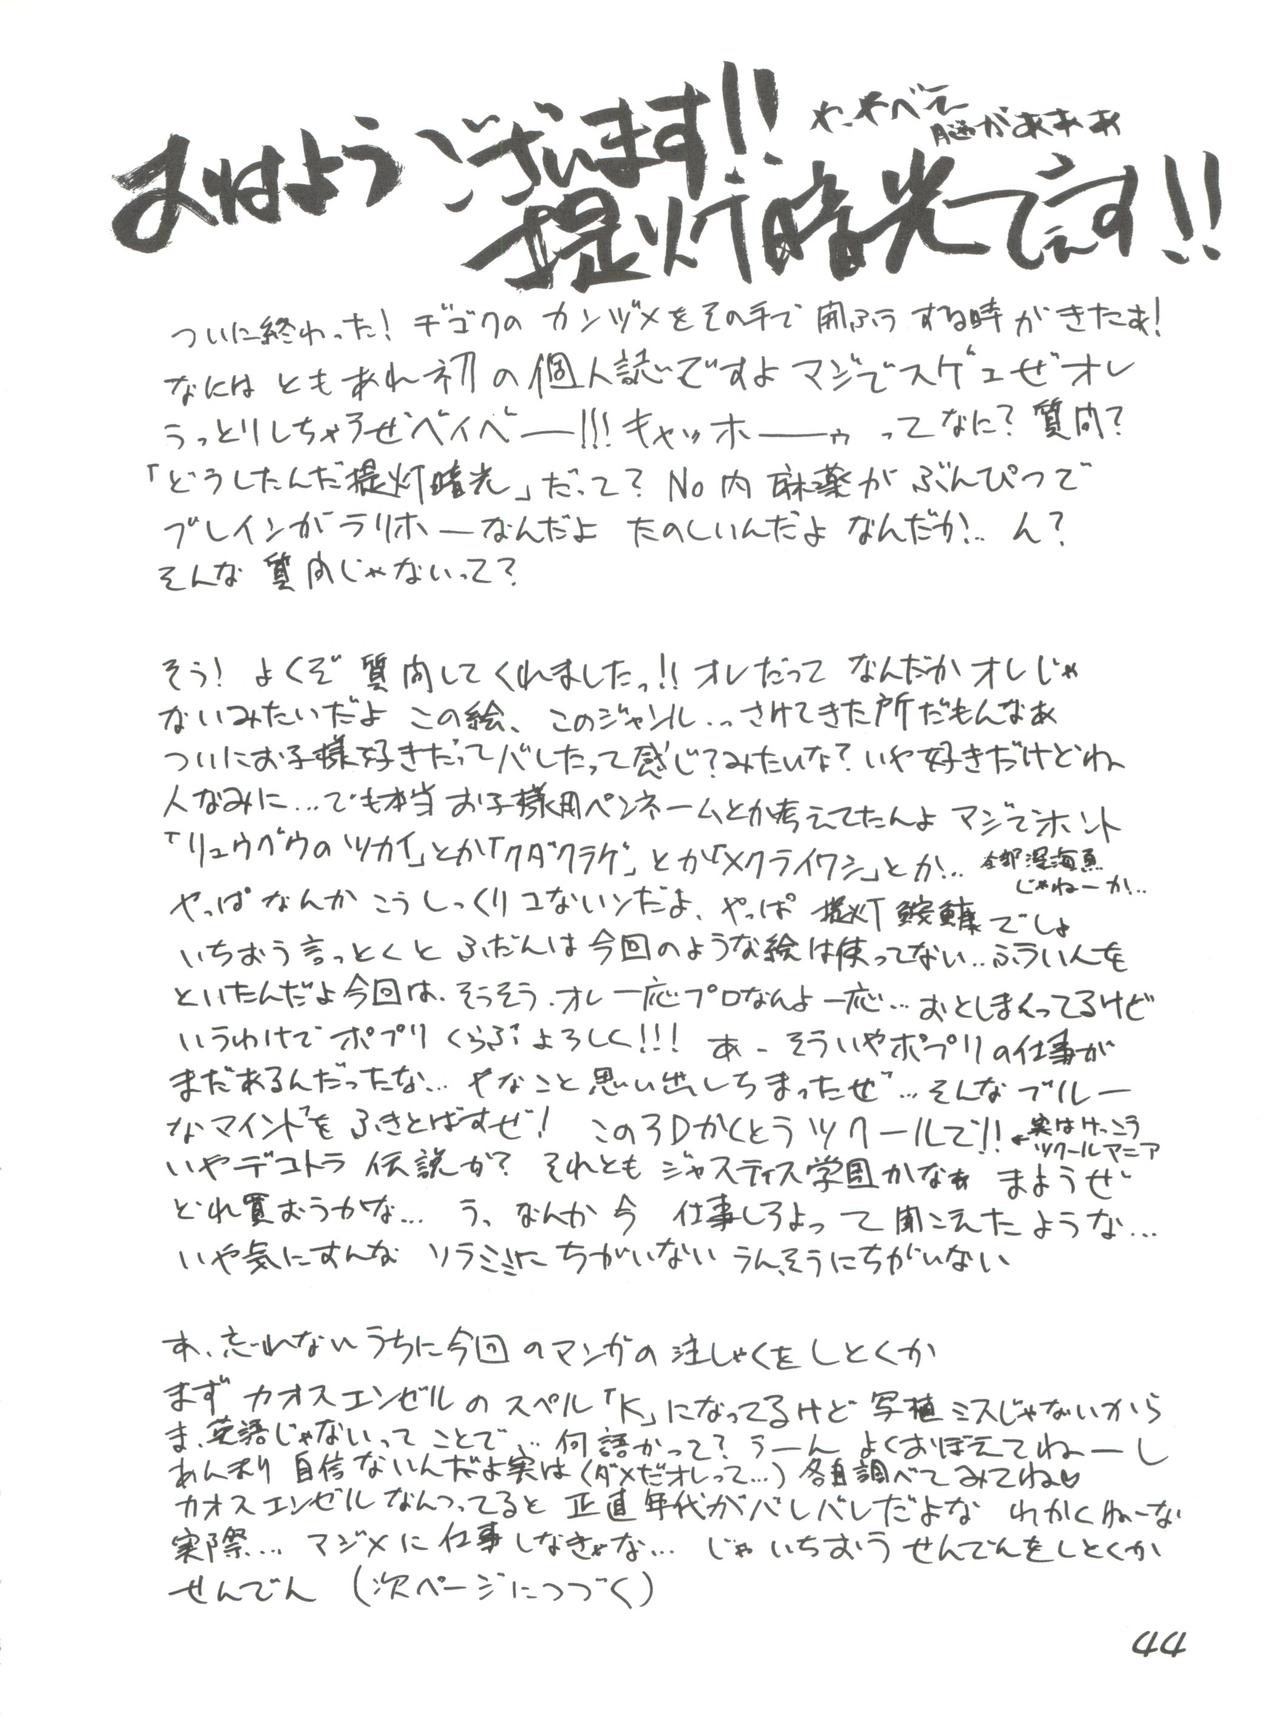 おはようございます!!
や、やべえ
脳がぁぁぁ
提灯暗光でぇす!!
ついに終わった! ヂゴクの カンヅメをその手で 開ふうする時がきたぁ!
なにはともあれ初の個人誌ですよマジでスゲェぜオレ
うっとりしちゃうぜベイベー!!! キャッホーゥ ってなに? 質問?
「どうしたんだ提灯暗光」だって? No内麻薬がぶんぴつで
ブレインがラリホーなんだよ たのしいんだよ なんだか... ん?
そんな質問じゃないって?
そう! よくぞ質問してくれましたっ!! オレだって なんだかオレじゃ
ないみたいだよ この絵、このジャンル...さけてきた所だもんなぁ
ついにお子様好きだってバレたって感じ?みたいな? いや好きだけどね
人なみに...でも本当お子様用ペンネームとか考えてたんよ マジでホント
「リュウグウのツカイ」とか「クダクラゲ」とか「メクライワシ」とか...
全部深海魚
じゃねーか...
やっぱなんかこうしっくりコないンだよ、やっぱ 提灯鮟鱇でしょ
いちおう言っとくと ふだんは今回のような絵は使ってない...ふういんを
といたんだよ今回は、そうそう、オレ一応プロなんよ一応...おとしまくってるけど
いうわけで ポプリくらぶよろしく!!! あ、そういやポプリの仕事が
まだあるんだったな... やなこと思い出しちまったぜ...そんなブルー
なマインドをふきとばすぜ! この3Dかくとうツクールで!!
←実はけっこう
ツクールマニア
いやデコトラ伝説か? それともジャスティス学園かなぁ まようぜ
どれ買おうかな... うっなんか今 仕事しろよって聞こえたような...
いや気にすんな ソラミミにちがいない うん、そうにちがいない
あ、忘れないうちに今回のマンガの注しゃくをしとくか
まず カオスエンゼルのスペル「K」になってるけど写植ミスじゃないから
ま、英語じゃないってことで... 何語かって? うーん よくおぼえてねーし
あんまり自信ないんだよ実は(ダメだオレって...)各自調べてみてね♡
カオスエンゼルなんつってると正直年代がバレバレだよな わかくねーな
実際... マジメに仕事しなきゃな... じゃ いちおうせんでんをしとくか
せんでん (次ページにつづく)
44